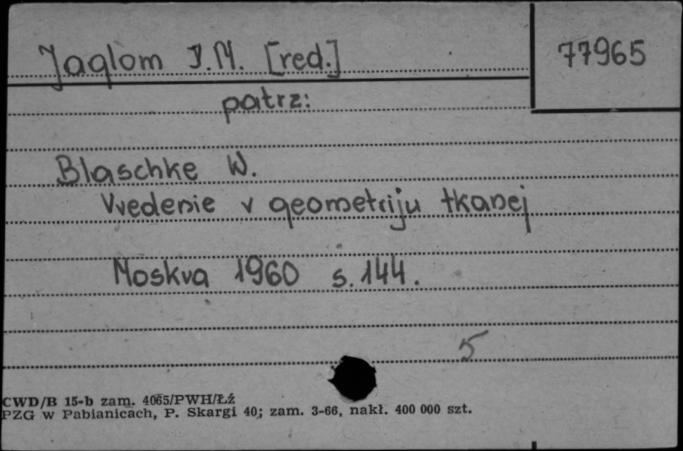 Jaglom I.M. [red.]
77965
patrz:
Blaschke W.
Vvedenie v geometriju tkanej
Moskva 1960 s. 144.
5
CWD/B 15-b zam. 4065/PWH/Łź
PZG w Pabianicach, P. Skargi 40; zam. 3-66, nakł. 400 000 szt.